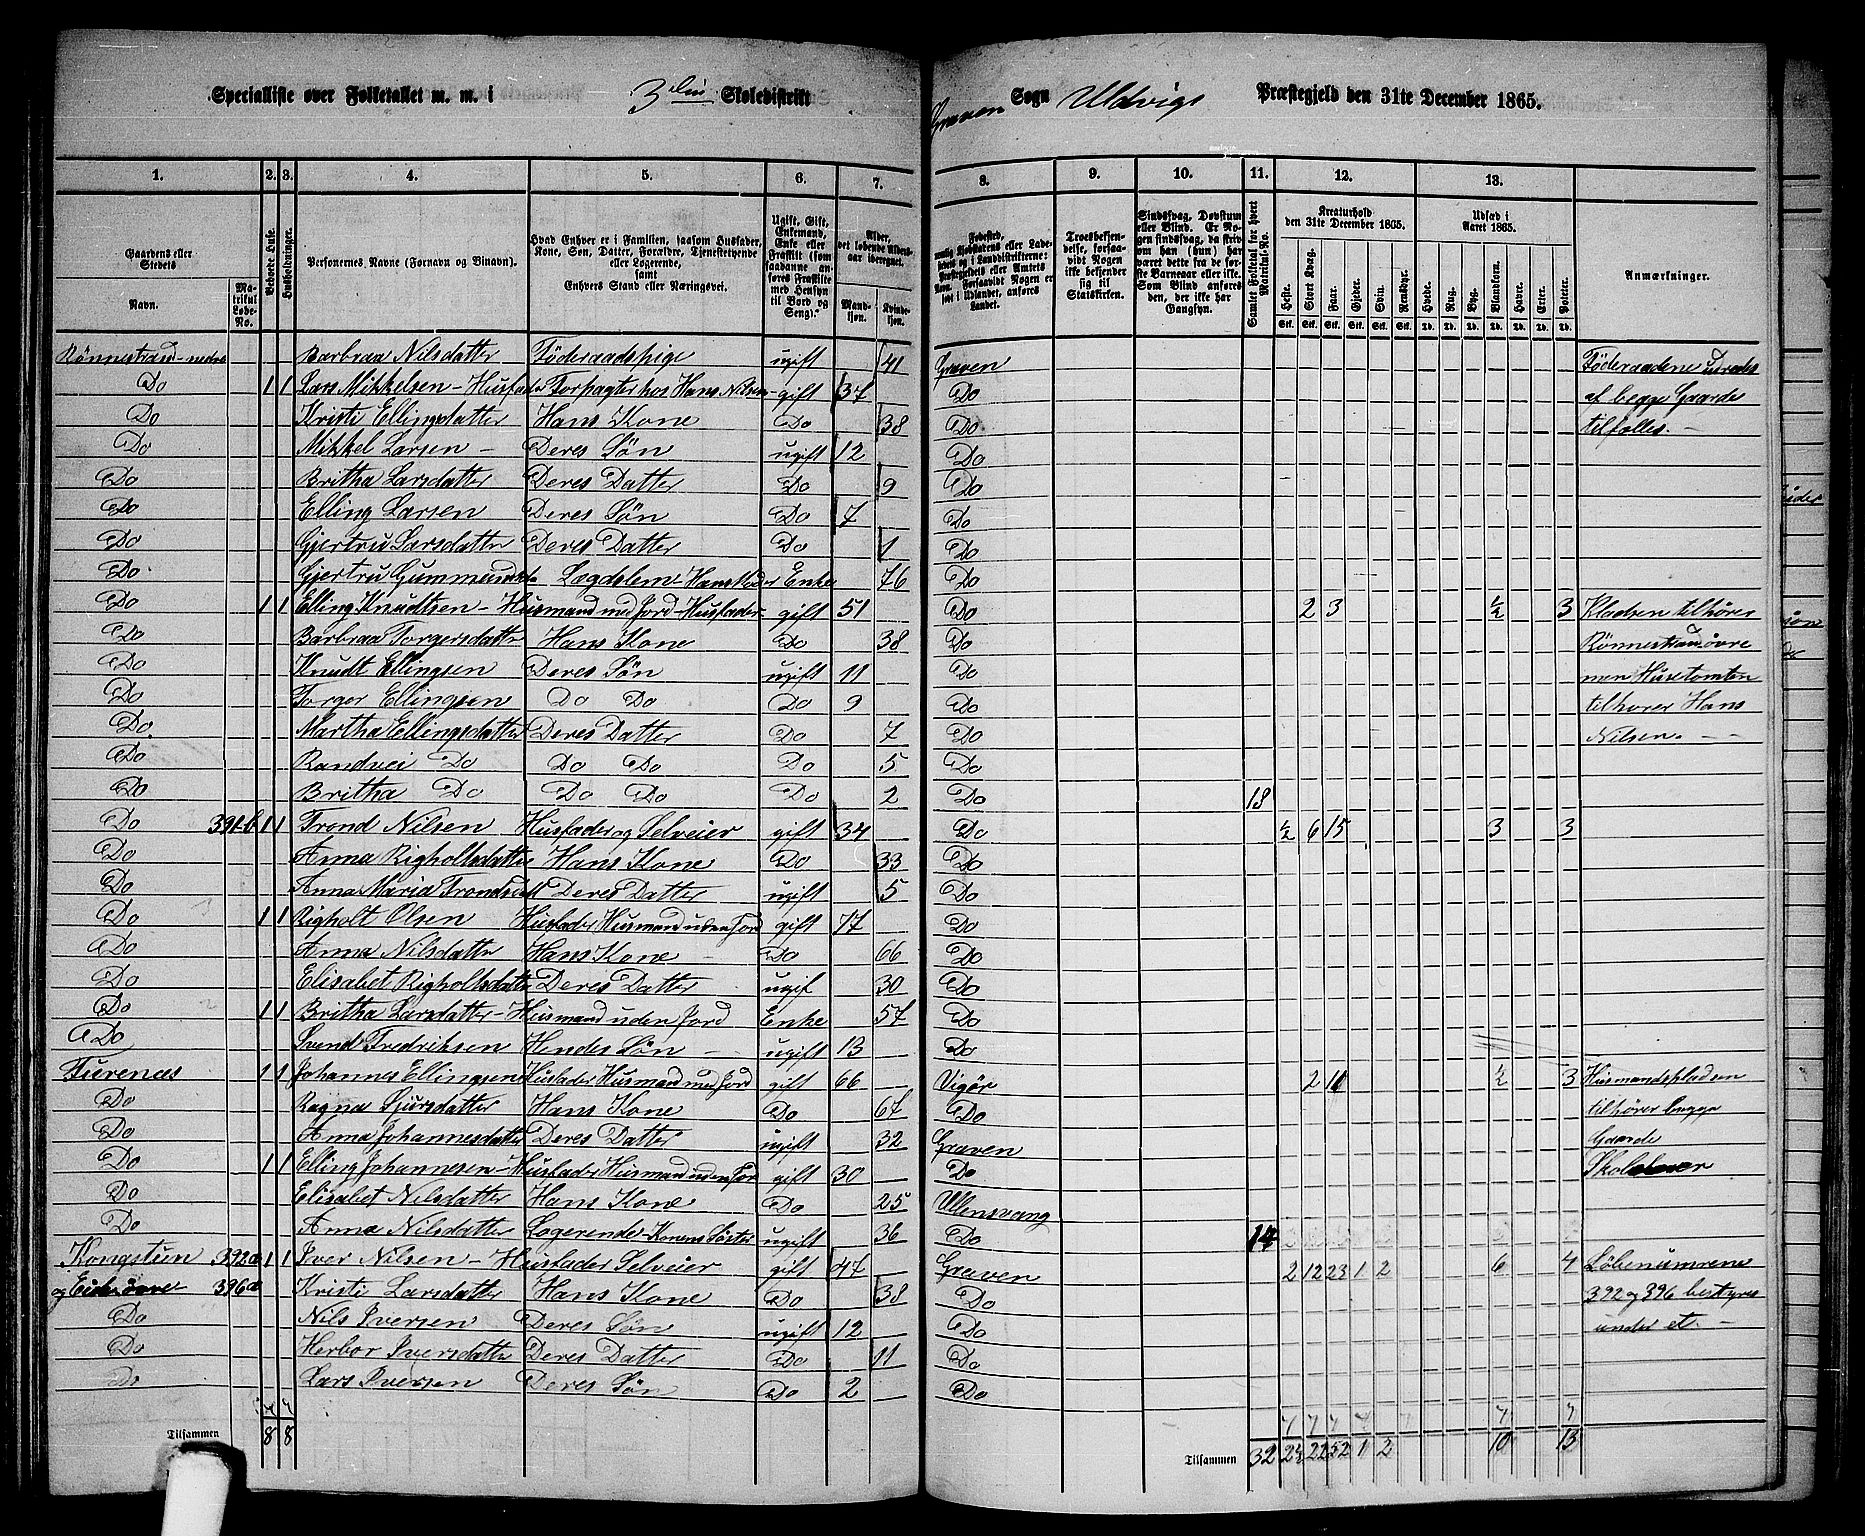 Specialliste over Folketallet m. m. i 3die Skoledistrikt Graven Sogn Ulvigs Præstegjeld den 31te December 1865.
1. 2. 3. 4. 5. 6. 7. 8. 9. 10. 11. 12. 13.
Gaardens eller Stedets
Navn. Matrikul Løbe-No.
Beboede Huse.
Husholdninger.
Personernes Navne (Fornavn og Tilnavn).
Hvad Enhver er i Familien, saasom Husfader, Kone, Søn, Datter, Forældre, Tjenestetyende eller Logerende, samt Enhvers Stand eller Næringsvei.
Ugift, Gift, Enkemand, Enke eller Fraskilt (som saadanne anføres Fraskilte med Hensyn til Bord og Seng).
Alder, det løbende Aldersaar iberegnet.
Mandkjøn. Kvindekjøn.
Fødested,
Troesbekjendelse, forsaavidt Nogen ikke bekjender sig til Statskirken.
Sindssvag, Døvstum eller Blind. Er Nogen sindssvag, da skriv om han (hun) har været dette fra første Barneaar eller ikke. Som Blind anføres den, der ikke har Gangsyn.
Samlet Folketal for hvert Matrikul-No.
Kreaturhold den 31te December 1865.
Heste. Stort Kvæg. Faar. Gjeder. Svin. Rensdyr.
Udsæd i Aaret 1865.
Hvede. Rug. Byg. Blandkorn. Havre. Erter. Poteter.
Anmærkninger.
Rønnestrand-nedre Barbraa Nilsdatter Føderaadspige ugift 41 Graven Føderaadene udredes
Do 1 1 Lars Mikkelsen - Husfader Forpagter hos Hans Nilsen gift 37 Do af begge Gaarde
Do Kristi Ellingsdatter Hans Kone Do 38 Do tilfælles. -
Do Mikkel Larsen - Deres Søn ugift 12 Do
Do Britha Larsdatter Deres Datter Do 9 Do
Do Elling Larsen Deres Søn Do 7 Do
Do Gjertru Larsdatter Deres Datter Do 1 Do
Do Gjertru Lægdslem Hans Moder Enke 76 Do
Do 1 1 Elling Knudtsen - Husmand med Jord - Husfader gift 51 Do 2 3 1/2 3 Pladsen tilhører
Do Barbraa Torgersdatter Hans Kone Do 38 Do Rønnestrand øvre
Do Knudt Ellingsen Deres Søn ugift 11 Do men Husetomten
Do Torger Ellingsen Do Do Do 9 Do tilhører Hans
Do Martha Ellingsdatter Deres Datter Do 7 Do Nilsen. - -
Do Randvei Do Do Do Do 5 Do
Do Britha Do Do Do Do 2 Do 18
Do 391-b 1 1 Trond Nilsen Husfader og Selveier gift 34 Do 1/2 6 15 3 3
Do Anna Righoltsdatter Hans Kone Do 33 Do
Do Anna Maria Trondsdatt Deres Datter ugift 5 Do
Do 1 1 Righolt Olsen Husfader Husmand uden Jord gift 77 Do
Do Anna Nilsdatter Hans Kone Do 66 Do
Do Elisabet Righoltsdatter Deres Datter ugif 30 Do
Do 1 1 Britha Larsdatter - Husmand uden Jord Enke 57 Do
Do Svend Fredriksen Hendes Søn - ugift 13 Do
Furenæs 1 1 Johannes Ellingsen Husfader Husmand med Jord gift 66 Vigør 2 11 1/2 3 Husmandspladsen
Do Ragna Sjursdatter Hans Kone Do 67 Do tilhører begge
Do Anna Johannesdatter Deres Datter ugift 32 Graven Gaarde
Do 1 1 Elling Johannesen - Husfader Husmand uden Jor gift 30 Do Skolelærer
Do Elisabet Nilsdatter Hans Kone Do 25 Ullensvang
Do Anna Nilsdatter Logerende Konens Søster ugift 36 Do 14
Kongstun 392a 1 1 Iver Nilsen - Husfader Selveier gift 47 Graven 2 12 23 1 2 6 4 Løbenumrene
og Eide øvre 396a Kristi Larsdatter Hans Kone Do 38 Do 392 og 396 bestyres
Do Nils Iversen Deres Søn ugift 12 Do under et. -
Do Herbor Iversdatter Deres Datter Do 11 Do
Do Lars Iversen Deres Søn Do 2 Do
7 7 7 7 7 7 7 7
Tilsammen 8 8 Tilsammen 32 2 1/2 22 52 1 2 10 13